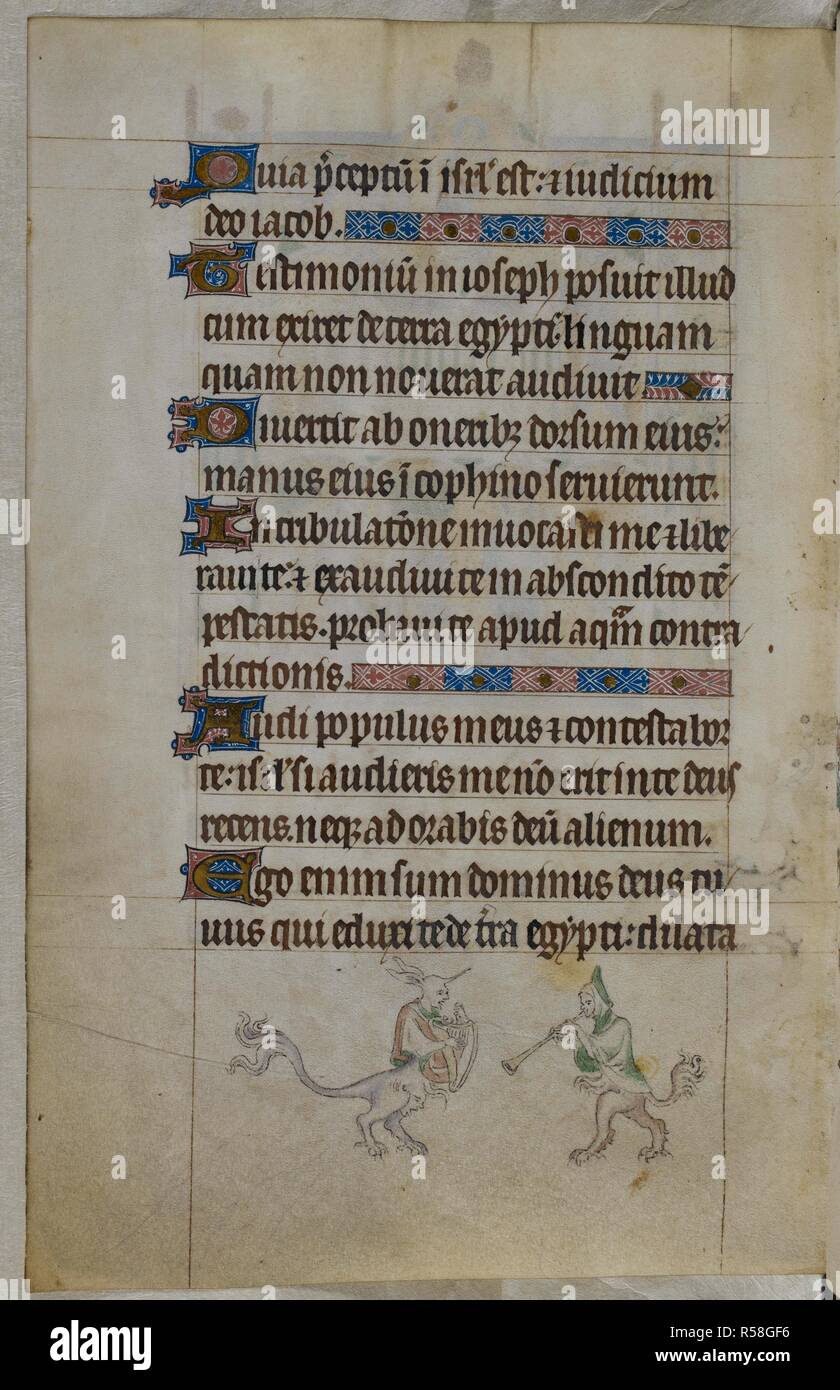 Quia p̄ceptū ī isrl' est: ⁊ iudicium
deo iacob.
Testimoniū in ioseph posuit illud
cum exiret de terra egypti: linguam
quam non nouerat audiuit
Diuertit ab oneribꝫ dorsum eius:
manus eius ī cophino seruierunt.
In tribulatōne inuocasti me ⁊ libe
raui te: ⁊ exaudiui te in abscondito tē
pestatis. probaui te apud aq̄m contra
dictionis.
Audi populus meus ⁊ contestabor
te: isrl' si audieris me nō erit in te deus
recens. neqꝫ adorabis deū alienum.
Ego enim sum dominus deus tu
uus qui eduxi te de t̄ra egypti: dilata
alamy
Image ID: R58GF6
www.alamy.com